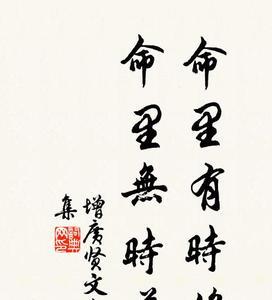 命里有時
命里無時
增廣賢文
集